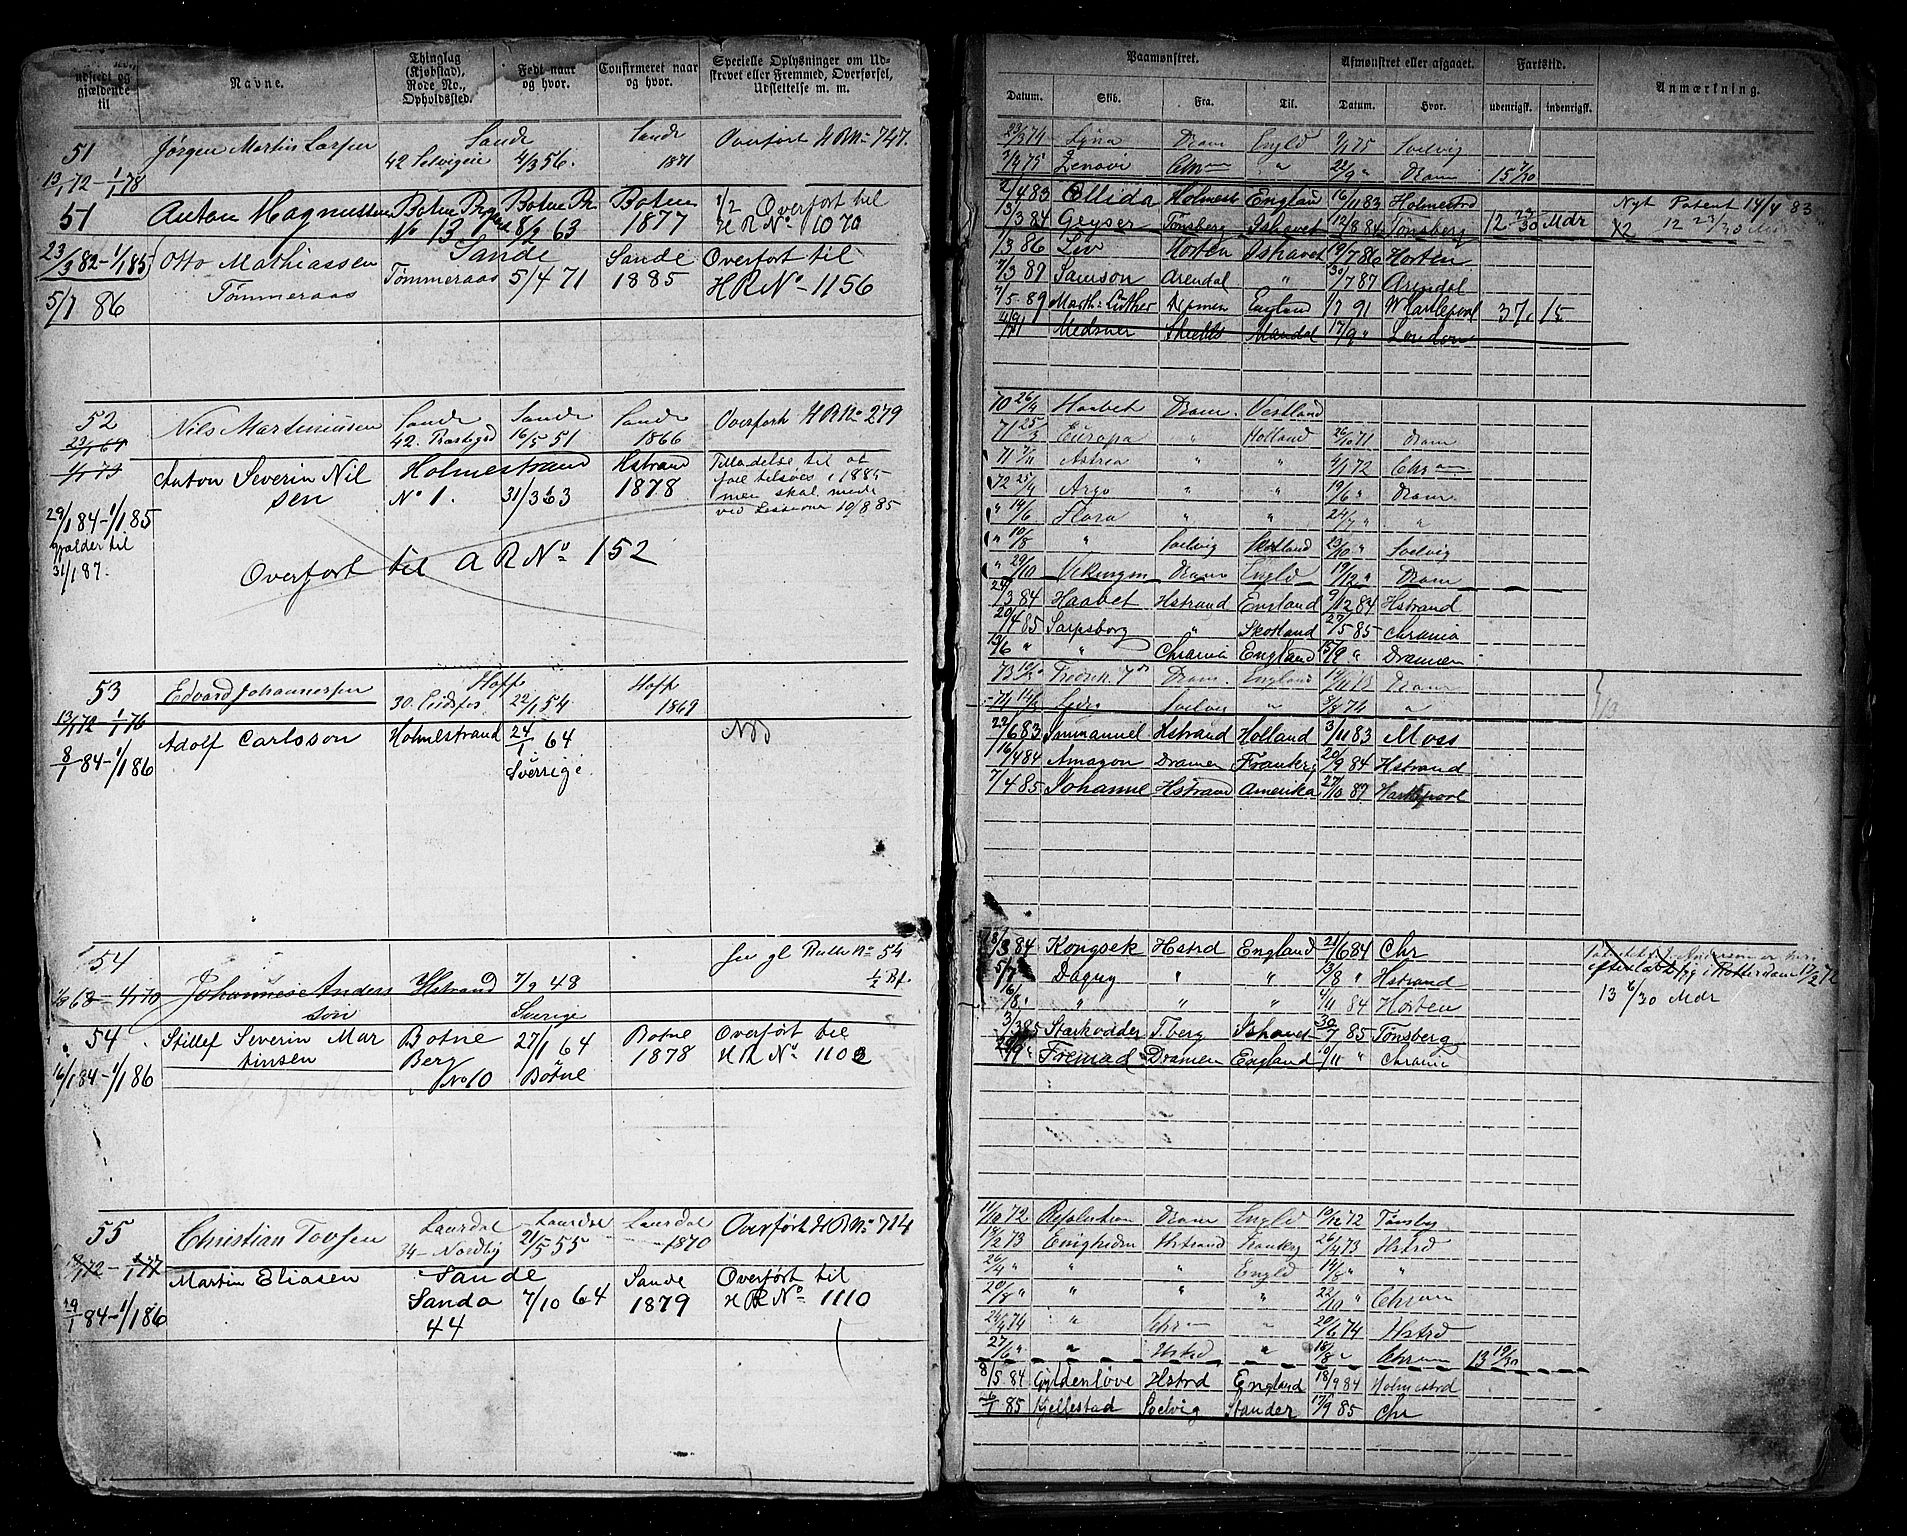 udstedt og gjældende til
Navne.
Thinglag (Kjøbstad), Rode No., Opholdssted.
Født naar og hvor.
Confirmeret naar og hvor.
Specielle Oplysninger om Udskrevet eller Fremmed, Overførsel, Udslettelse m. m.
51 Jørgen Martin Larsen Sande Sande Overført H R No 747.
13/1 72 – 1/1 78 42 Selvigeie 4/3 56. 1871
51 Anton Magnussen Botne Botne Botne 1/2 Overført til
No 13 8/2 63 1877 H R No 1070
23/3 82 – 1/1 85 Otto Mathiassen Sande Sande Overført til
5/7 86 Tømmeraas Tømmeraas 5/4 71 1885 H R No 1156
52 Nils Martiniusen Sande Sande Sande Overført H R No 279
42. 16/5 51 1866
1/1 74 Anton Severin Nil Holmestrand Hstrand Tilladelse til at
sen No 1. 31/3 63 1878
29/1 84 – 1/1 85 men skal møde
gjælder til ved Sessionen 10/8 85
31/1 87. Overført til A R No 152
53 Edvard Johannessen Hoff Hoff
13/1 72 – 1/1 76 30. Eidsfos 22/1 54 1869
8/1 84 – 1/1 86 Adolf Carlsson Holmestrand 24/1 64
Sverrige
54 gl Rulle No 54
1/8 68 – 1/1 70 Johannes Anders Hstrand 7/9 48 1/2 Bf.
son Sverige
54 Stillef Severin Mar Botne 27/1 64 Botne Overført til
16/1 84 – 1/1 86 tinsen Berg 1878 H R No 1103
No 10 Botne
55 Christian Tovsen Laurdal Laurdal Laurdal Overført H R No 714
34 – Nordby 21/5 55 1870
1/1 77 Martin Eliasen Sande Sande Overført til
29/1 84 – 1/1 86 Sanda 7/10 64 1879 H R No 1110
44
Paamønstret.
Afmønstret eller afgaaet.
Fartstid.
Anmærkning.
Datum. Skib. Fra. Til. Datum. Hvor. udenrigsk. indenrigsk.
23/3 74 Dram Engld 9/1 75 Svelvig
7/4 75 Zenovi Chr " 22/9 " Dram 15 7/30
2/4 83 Ellida Holmest England 16/11 83 Holmestrd Nyt Patent 14/4 83
13/3 84 Geyser Tønsberg Ishavet 12/8 84 Tønsberg 12 23/30 Mdr 12 23/30 Mdr
1/3 86 Liv Horten Ishavet 19/7 86 Horten
7/3 87 Samson Arendal " 30/7 87 Arendal
7/5 89 Marth: Luther Dramen England 1/7 91 W Hartlepool 37. 15
Medsner Shields Mandal 17/9 " London
70 26/4 Haabet Dram. Vestland
71 25/3 Europa " Holland 26/10 71 Dram
71 7/11 Astrea " " 4/1 72 Chr
72 25/4 Argo " " 19/6 " Dram
" 14/6 Flora " " 24/7 " "
" 10/8 " Svelvig Skotland 23/10 " Svelvig
" 29/10 Vikingen Dram Engld 19/12 " Dram
24/3 84 Haabet Hstrand England 9/12 84 Hstrand
20/4 85 Sarpsborg " Skotland 27/5 85 Chrania
13/6 " " Chrania England 13/9 " Dramen
73 Fredrik 7de Dram. England Dram
Svelv " 9/8 74 "
22/6 83 Immanuel Hstrand Holland 3/11 83 Moss
16/4 84 Amazon Dramen Frankr. 20/9 84 Hstrand
7/4 85 Johanne Hstrand Amerika 27/10 87 Hartlepool
13/3 84 Kongsek Hstrd England 21/6 84 Chr
5/7 Dagny " " 3/8 " Hstrand i Rotterdam 17/2 72
16/8 " " " " 4/11 84 Horten 13 6/30 Mdr
3/3 85 Starkodder T.berg Ishavet 30/7 85 Tønsberg
Fremad Dramen England 10/11 " Chrania
11/10 72 Resolution Dram Engld 10/12 72 Tønsbg
18/2 73 Enigheden Hstrand Frankrg 26/4 73 Hstrd
26/4 " " " Engld 14/8 " "
20/8 " " " " 22/10 " Chr
24/4 74 " Chr " 20/6 74 Hstrd
27/6 " " Hstrd " 18/8 " Chr 13 19/30
8/5 84 Gyldenløve Hstrd England 18/9 84 Holmestrd
6/1 85 Kjellestad Svelvig 17/9 85 Chr